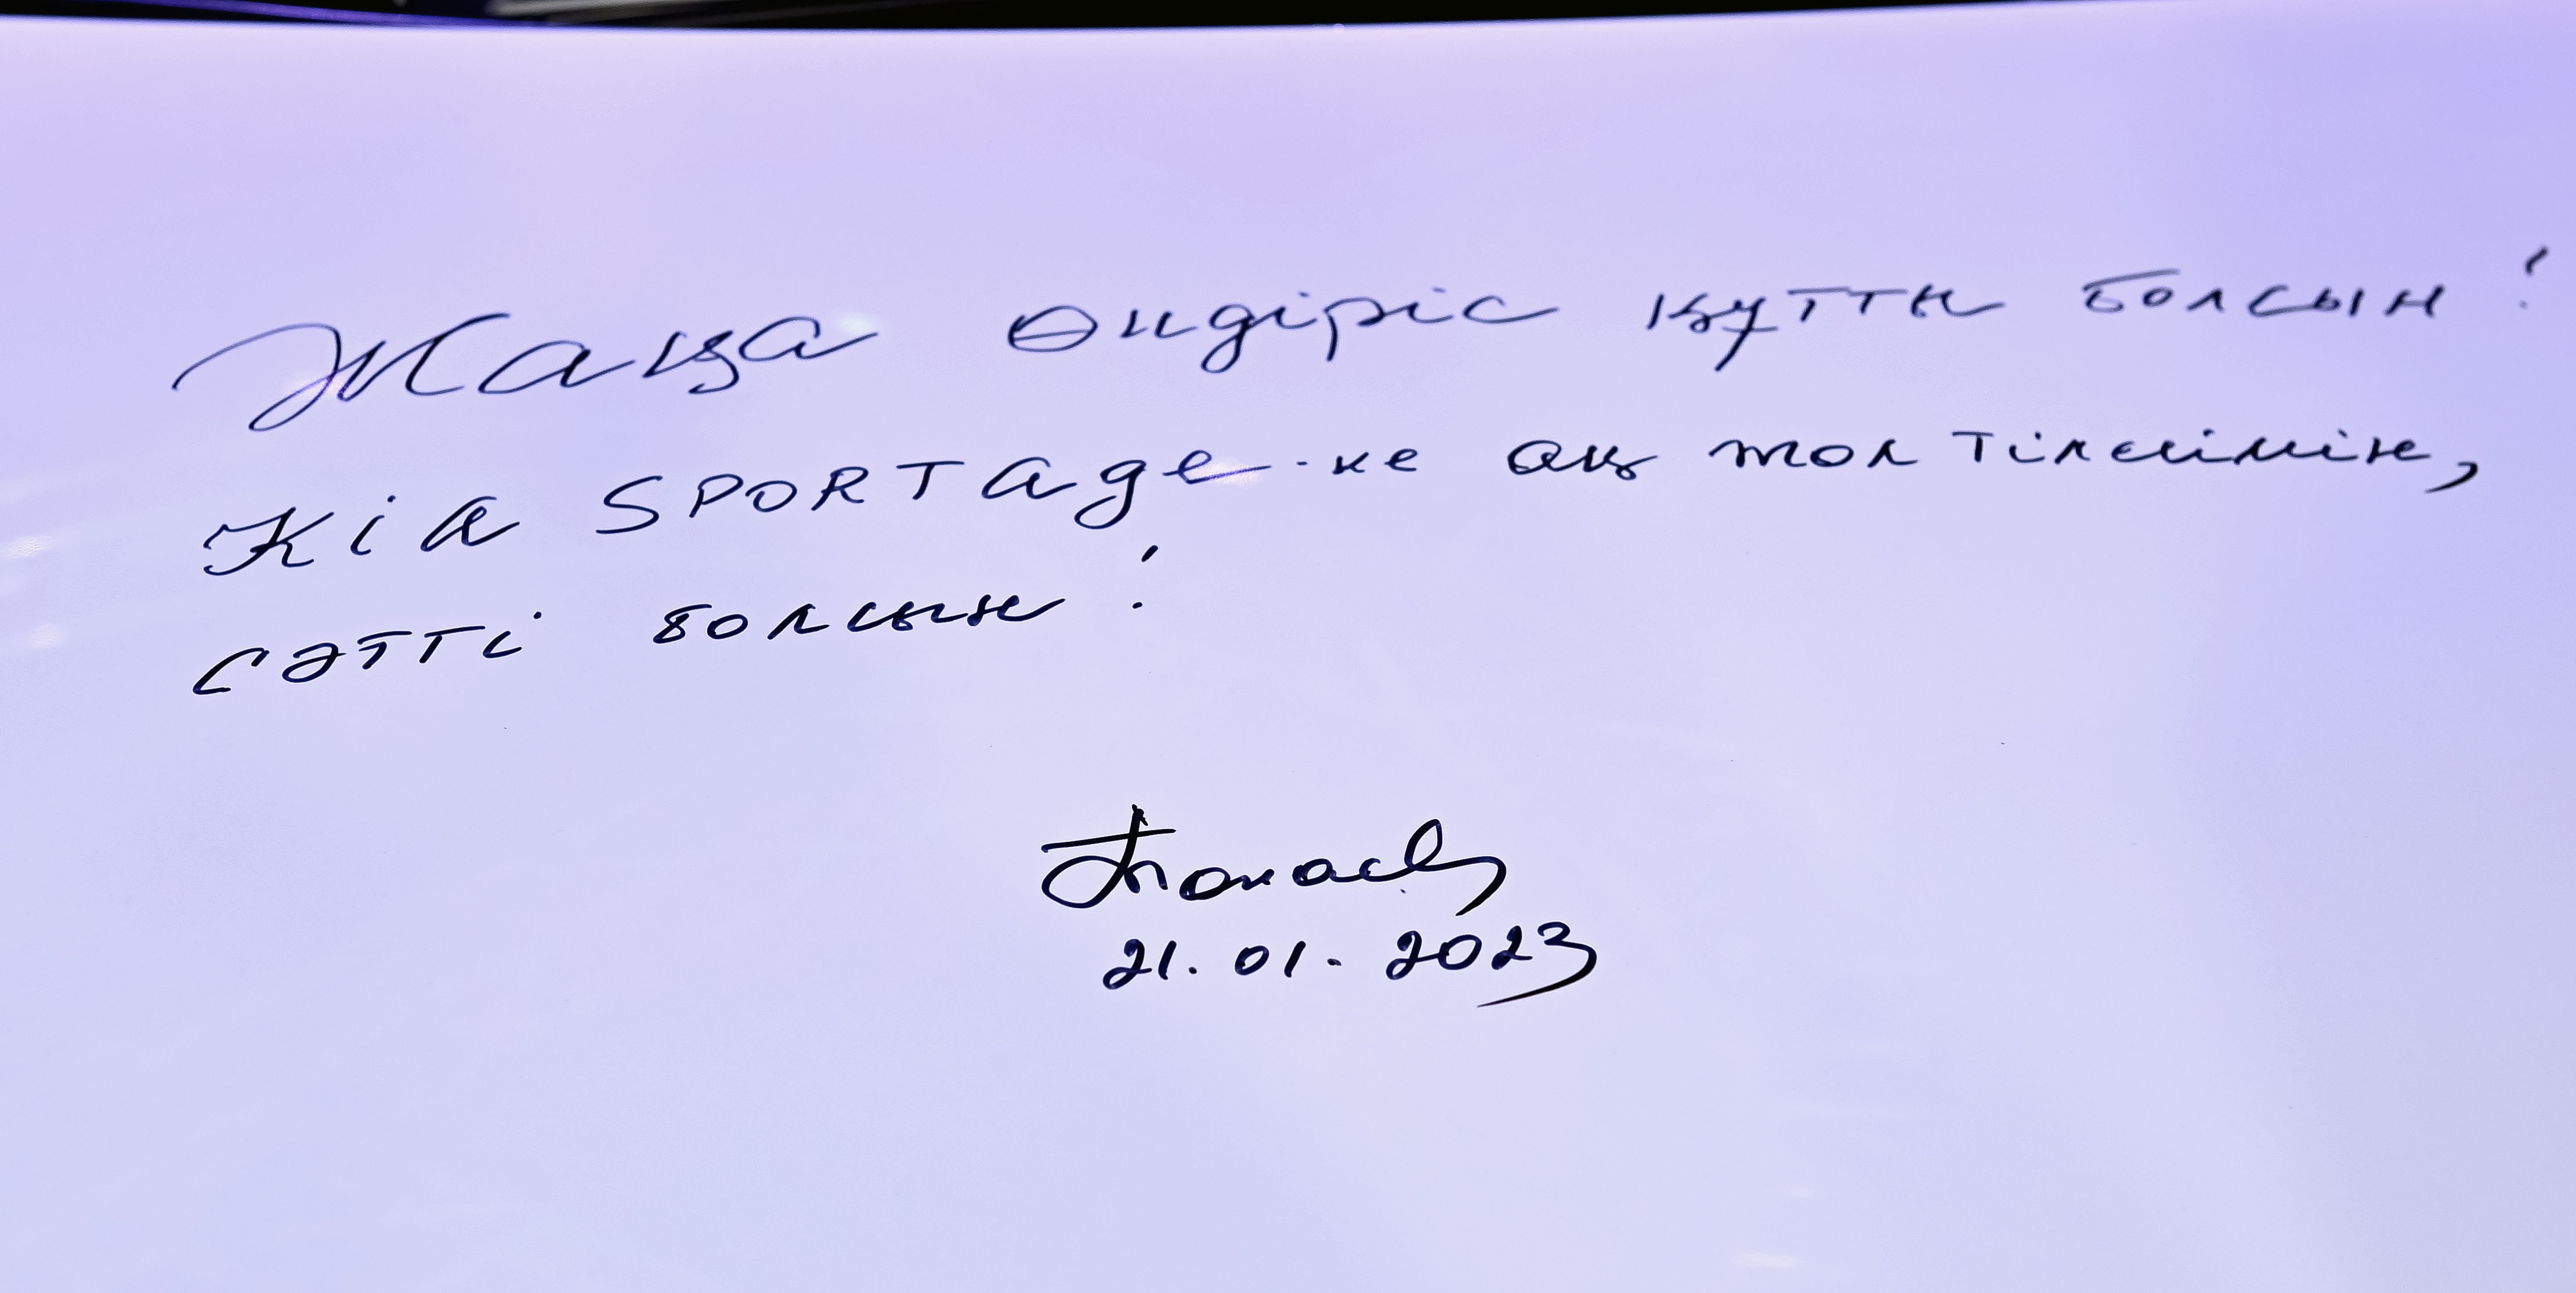 Жаңа өндіріс құтты болсын!
Kia SPORTage-ке ақ жол тілеймін,
сәтті болсын!
21.01.2023